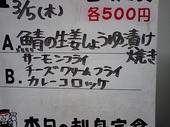 3/5(木) 各500円
A.鯖の生姜しょうゆ漬け
焼き
サーモンフライ
チーズクリームフライ
B.カレーコロッケ
本日の刺身定食